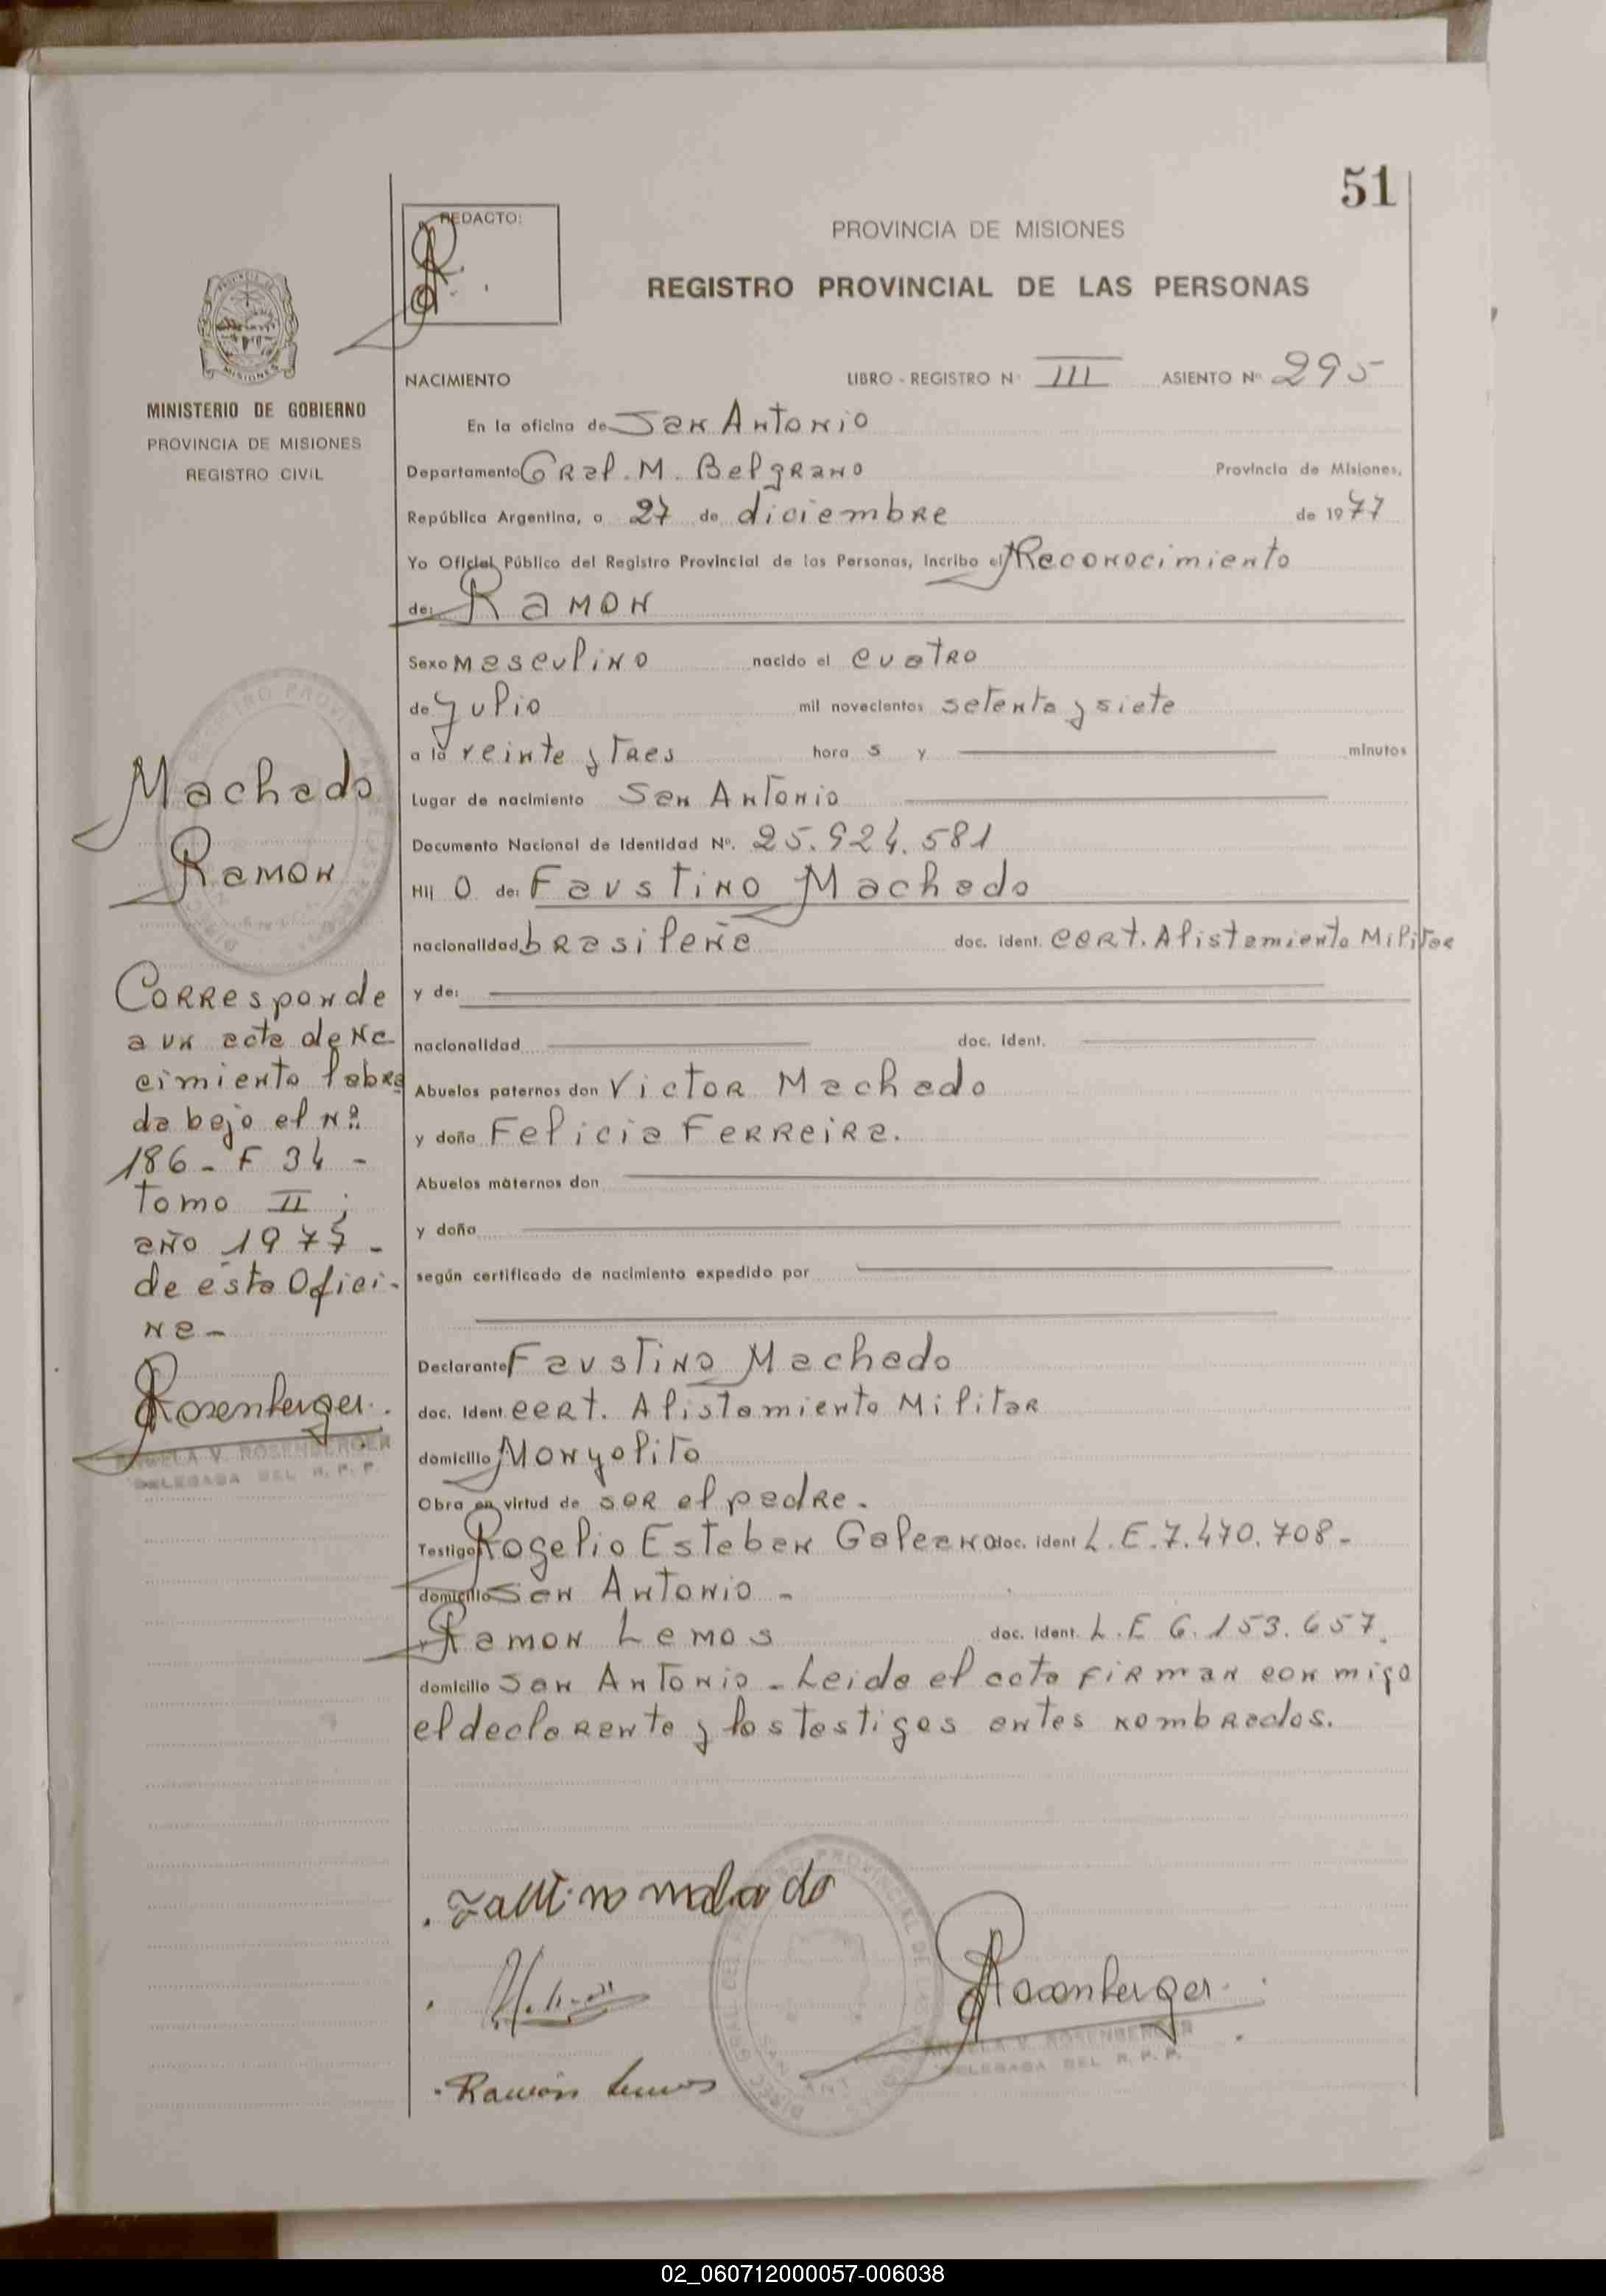 51
REDACTO:
PROVINCIA DE MISIONES
REGISTRO PROVINCIAL DE LAS PERSONAS
NACIMIENTO LIBRO - REGISTRO Nº III ASIENTO Nº 295
MINISTERIO DE GOBIERNO
PROVINCIA DE MISIONES
REGISTRO CIVIL
En la oficina de San Antonio
Departamento Gral. M. Belgrano Provincia de Misiones,
República Argentina, a 27 de diciembre de 1977
Yo Oficial Público del Registro Provincial de las Personas, incribo el Reconocimiento
de: Ramon
Sexo masculino nacido el cuatro
de Julio mil novecientos setenta y siete
a la veinte y tres hora s y minutos
Lugar de nacimiento San Antonio
Documento Nacional de Identidad Nº. 25.924.581
Hij o de: Faustino Machado
nacionalidad brasileña doc. ident. cert. Alistamiento Militar
y de:
nacionalidad doc. ident.
Abuelos paternos don Victor Machado
y doña Felicia Ferreira.
Abuelos maternos don
y doña
según certificado de nacimiento expedido por
Declarante Faustino Machado
doc. ident. cert. Alistamiento Militar
domicilio Monyolito
Obra en virtud de ser el padre.
Testigo Rogelio Esteban Galeano doc. ident L.E. 7.470.708-
domicilio San Antonio -
y Ramon Lemos doc. ident. L.E 6.153.657.
domicilio San Antonio - Leida el acta firman conmigo
el declarante y los testigos antes nombrados.
Machado
Ramon
Corresponde
a un acta de Na
cimiento labra
da bajo el Nº
186 - F 34 -
Tomo II ;
año 1977 -
de ésta Ofici-
na -
Rosenberger.
ANGELA V. ROSENBERGER
DELEGADA DEL R. P. P.
Faustino machado
Rosenberger.
ANGELA V. ROSENBERGER
DELEGADA DEL R. P. P.
Ramón Lemos
02_060712000057-006038